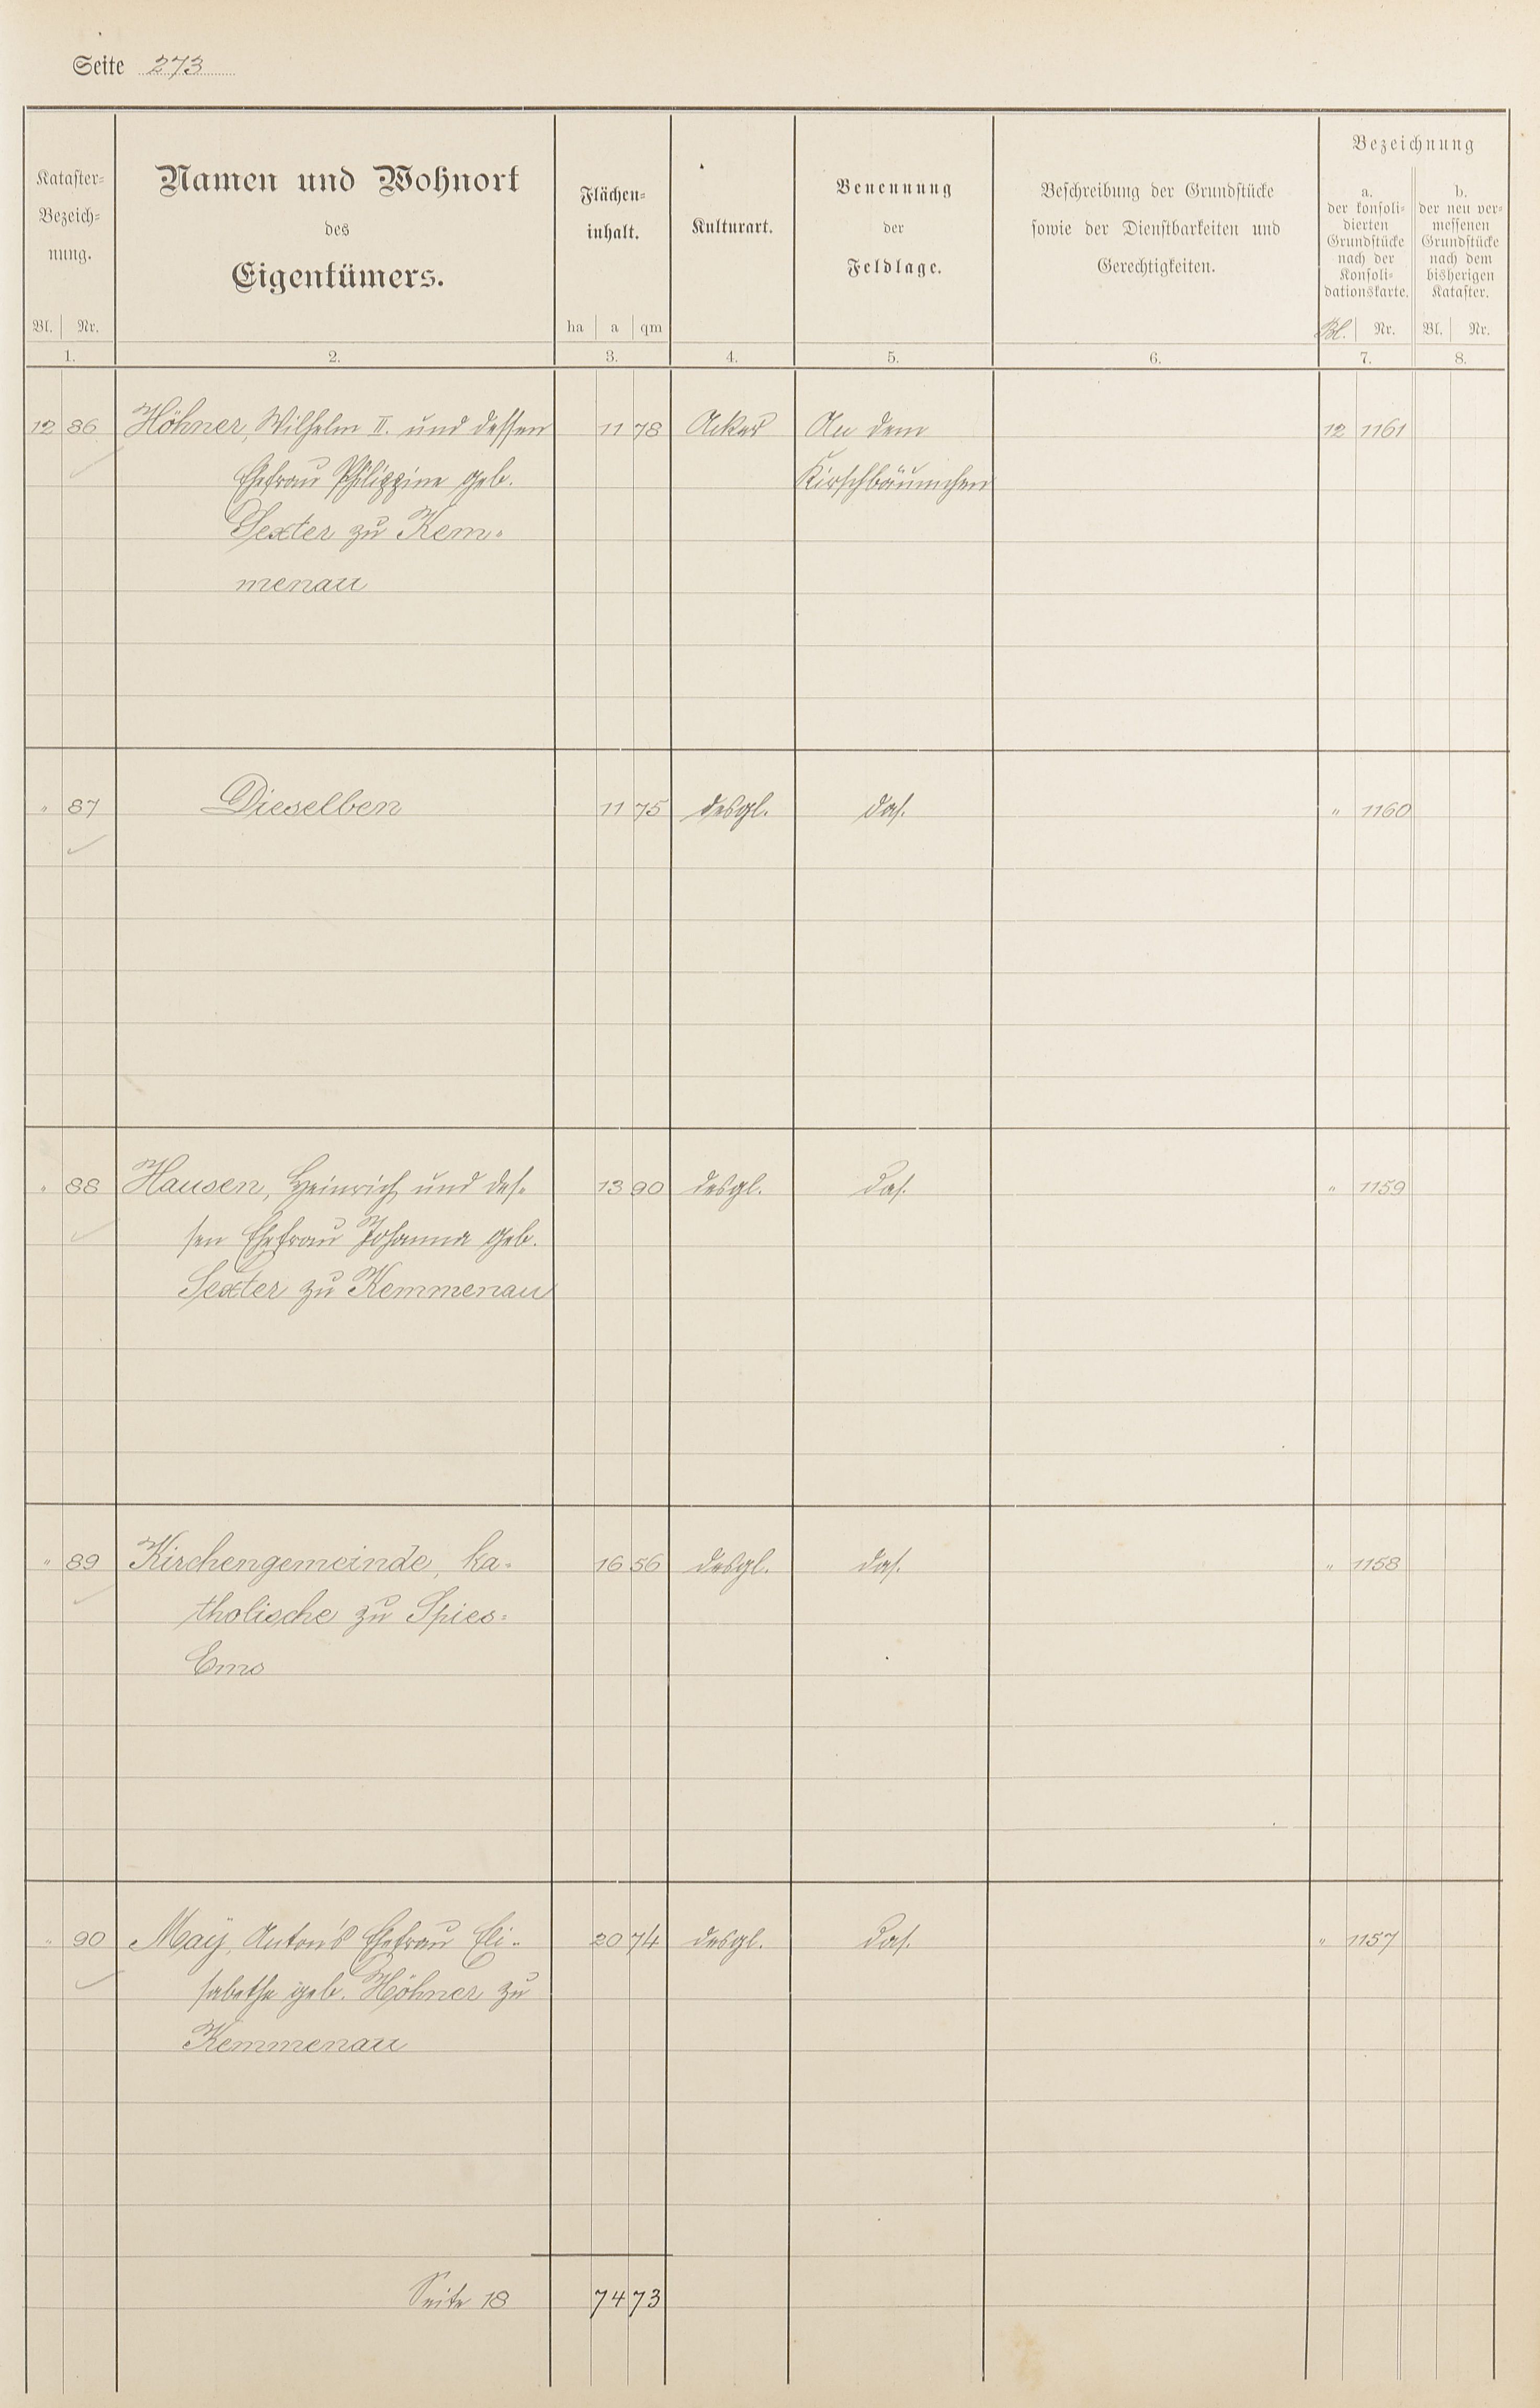 Seite 273
Kataster-Bezeich-nung.
Namen und Wohnort
des
Eigentümers.
Flächen-
inhalt.
Kulturart.
Benennung
der
Feldlage.
Beschreibung der Grundstücke
sowie der Dienstbarkeiten und
Gerechtigkeiten.
Bezeichnung
a.
der konsoli-
dierten
Grundstücke
nach der
Konsoli-
dationskarte.
b.
der neu ver-
messenen
Grundstücke
nach dem
bisherigen
Kataster.
Bl. Nr. ha a qm Bl. Nr. Bl. Nr.
1. 2. 3. 4. 5. 6. 7. 8.
12 86 Höhner, Wilhelm II. und dessen 11 78 Acker An dem 12 1161
Ehefrau Philippine geb. Kirschbäumchen
Sexter zu Kem-
menau
" 87 Dieselben 11 75 desgl. das. " 1160
" 88 Hausen, Heinrich und des- 13 90 desgl. das. " 1159
sen Ehefrau Johanna geb.
Sexter zu Kemmenau
" 89 Kirchengemeinde, ka- 16 56 desgl. das. " 1158
tholische zu Spies-
Ems
" 90 Maÿ, Anton's Ehefrau Eli- 20 74 desgl. das. " 1157
sabethe geb. Höhner zu
Kemmenau
Seite 18 74 73